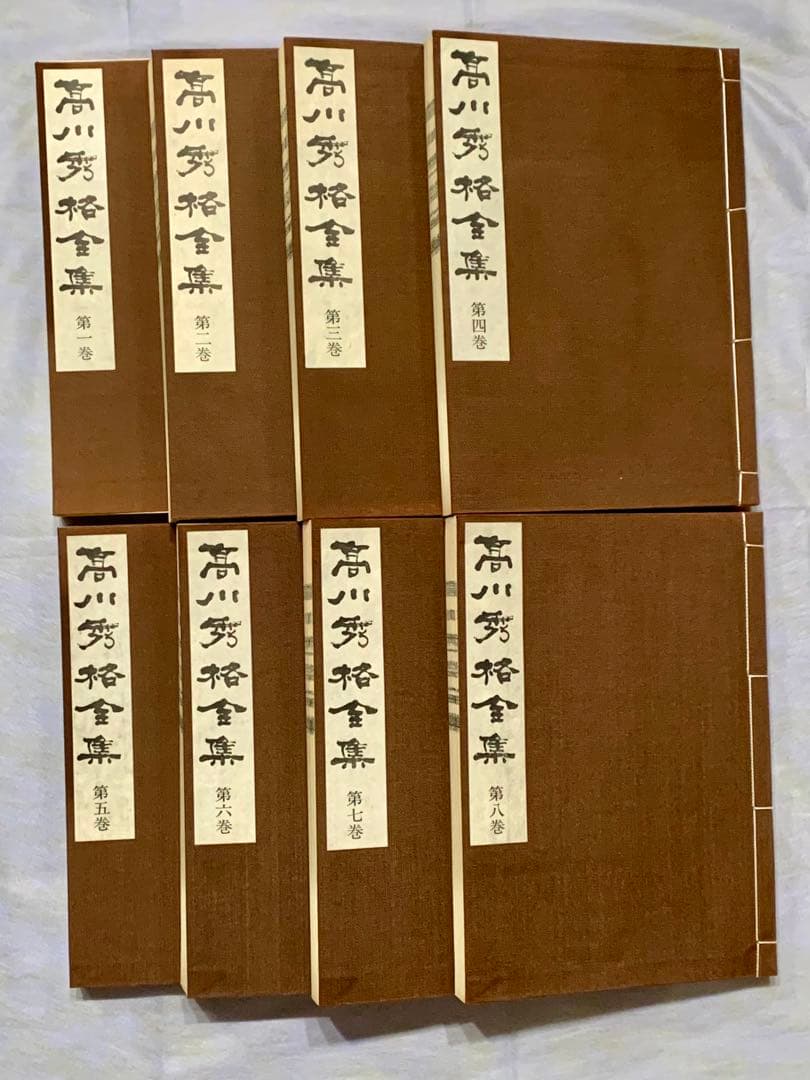 高川秀格全集 第一巻
高川秀格全集 第二巻
高川秀格全集 第三巻
高川秀格全集 第四巻
高川秀格全集 第五巻
高川秀格全集 第六巻
高川秀格全集 第七巻
高川秀格全集 第八巻